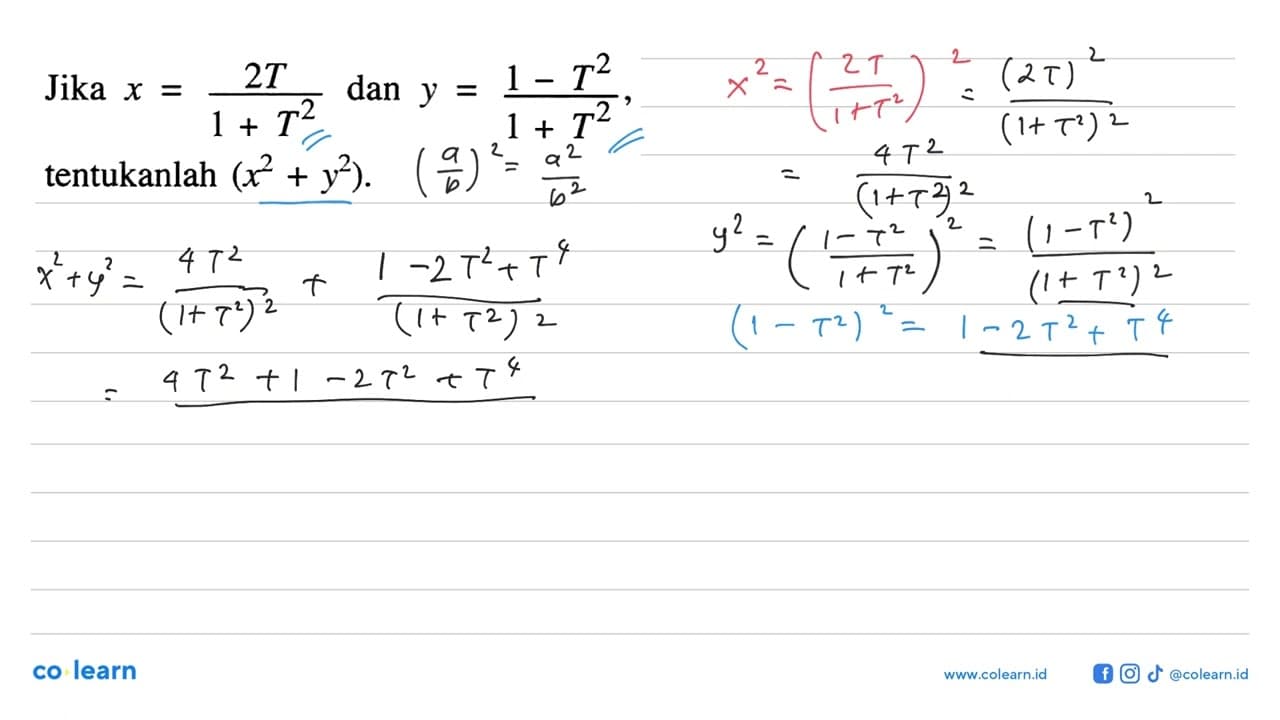 Jika x = 2T / (1 + T²) dan y = (1 − T²) / (1 + T²),
tentukanlah (x² + y²). (a/b)² = a²/b²
x² + y² = 4T² / (1 + T²)² + (1 − 2T² + T⁴) / (1 + T²)²
= 4T² + 1 − 2T² + T⁴
x² = (2T / (1 + T²))² = (2T)² / (1 + T²)²
= 4T² / (1 + T²)²
y² = ((1 − T²) / (1 + T²))² = (1 − T²)² / (1 + T²)²
(1 − T²)² = 1 − 2T² + T⁴
co learn
www.colearn.id @colearn.id